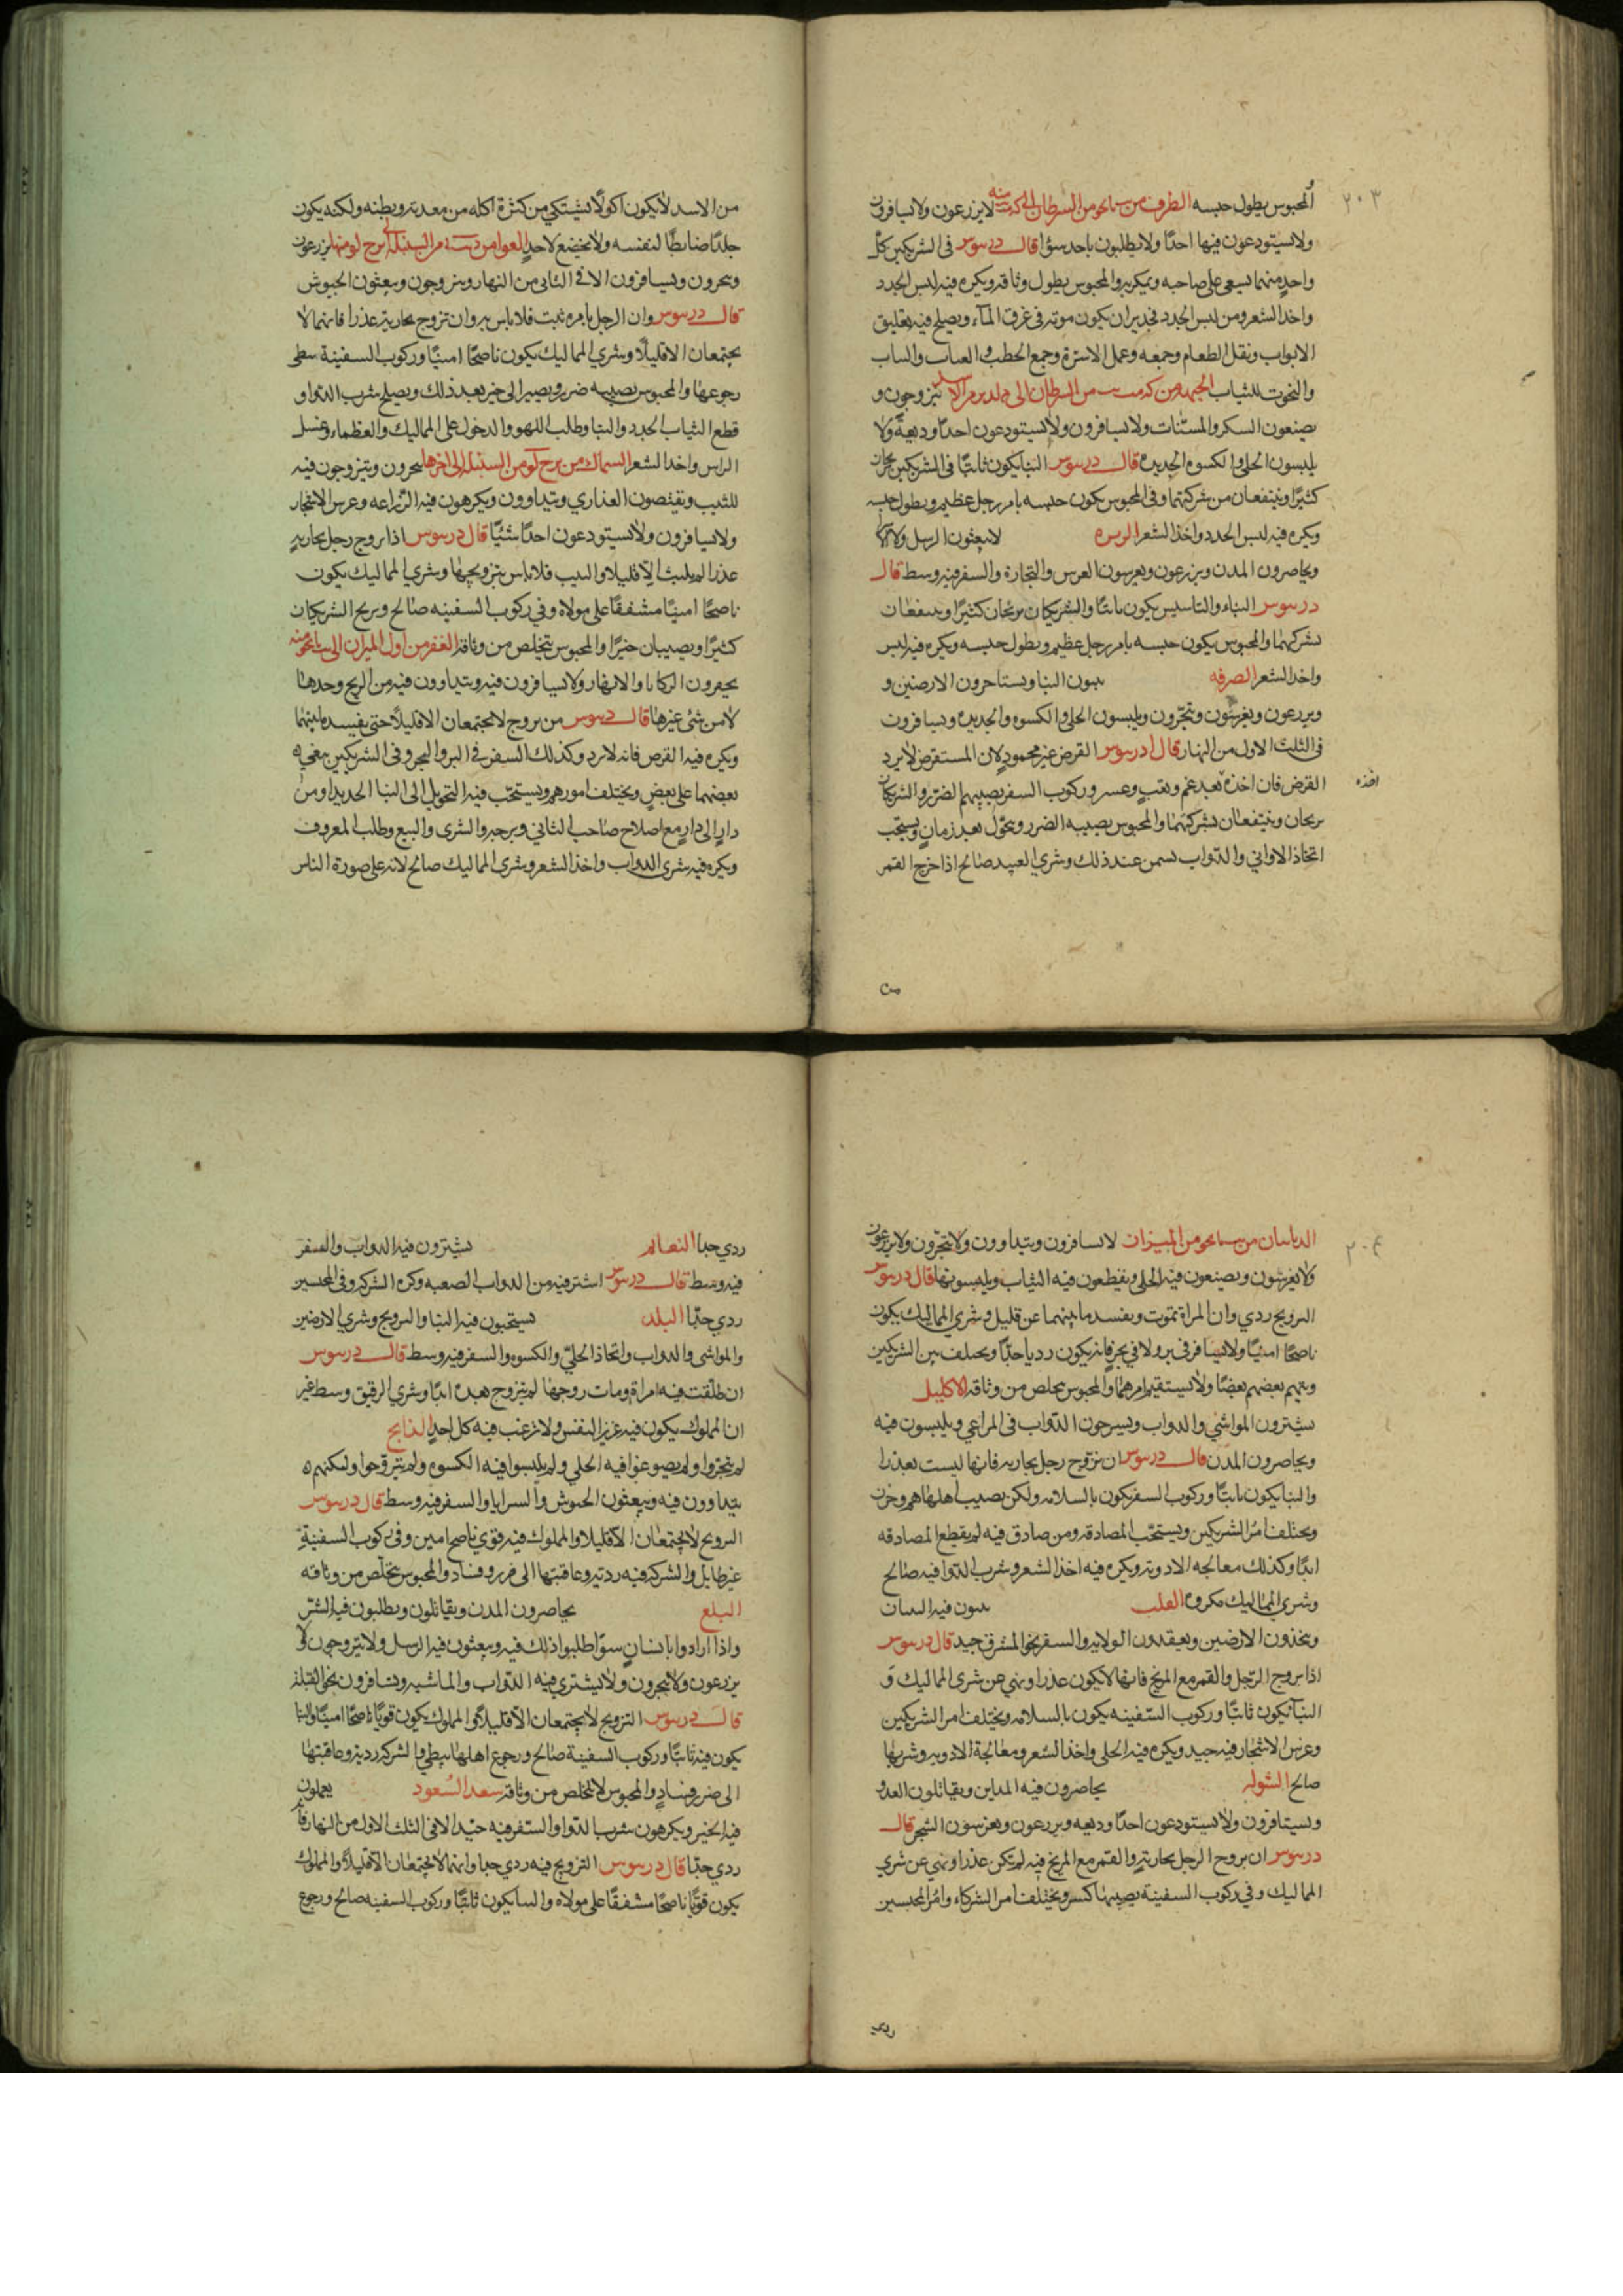 ٢٠٣
المحبوس يطول حبسه الطرف من السرطان الى منه لا يزرعون ولا يسافرون
ولا يستودعون فيها احدًا ولا يطلبون باحد سوًا قال دريوس في الشريكين كل
واحدٍ منهما يسعى على صاحبه ويمكر به والمحبوس يطول وثاقه ويكره فيه لبس الجدد
واخذ الشعر ومن لبس الجدد فجدير ان يكون موته في غرق المآء ويصلح فيه تعليق
الابواب ونقل الطعام وجمعه وعمل الاسرة وجمع الحطب
والتخوت للثياب الجبهة من السرطان الى من الاسد يتزوجون و
يصنعون السكر والمسنّات ولا يسافرون ولا يستودعون احدًا وديعةً ولا
يلبسون الحلي والكسوه الجديده قال دريوس البنا يكون ثابتًا في الشريكين يربحان
كثيرًا وينتفعان من شركتهما وفي المحبوس يكون حبسه بامر رجل عظيم ويطول حبسه
ويكره فيه لبس الجدد واخذ الشعر الزبره لا يبعثون الرسل ولا
ويحاصرون المدن ويزرعون ويغرسون الغرس والتجارة والسفر فيه وسط قال
دريوس البناء والتاسيس يكون ثابتًا والشريكان يربحان كثيرًا وينتفعان
بشركتهما والمحبوس يكون حبسه بامر رجل عظيم ويطول حبسه ويكره فيه لبس
واخذ الشعر الصرفه يبنون البنا ويستاجرون الارضين و
ويزرعون ويغرسون ويتجرون ويلبسون الحلي والكسوه الجديده ويسافرون
في الثلث الاول من النهار قال دريوس القرض غير محمود لان المستقرض لا يرد
القرض فان اخذه بعد غم وتعب وعسر وركوب السفر يصيبهم الضرر والشريكان
يربحان وينتفعان بشركتهما والمحبوس يصيبه الضرر وتحوّل بعد زمان ويستحب
اتخاذ الاواني والدّواب تسمن عند ذلك وشري العبيد صالح اذا خرج القمر
من
من الاسد لا يكون اكولًا يشتكي من كثرة اكله من معدته وبطنه ولكنه يكون
جلدًا ضابطًا لنفسه ولا يخضع لاحدٍ العوا من السنبله الى منها يزرعون
ويتجرون ويسافرون الا في الثاني من النهار ويتزوجون ويبعثون الجيوش
قال دريوس وان الرجل بامره ثبت فلا باس به وان تزوج بجارية عذرا فانهما لا
يجتمعان الا قليلًا وشري المماليك يكون ناصحًا امينًا وركوب السفينة يبطي
رجوعها والمحبوس يصيبه ضرر ويصير الى خير بعد ذلك ويصلح شرب الدوا و
قطع الثياب الجدد والبنا وطلب اللهو والدخول على المماليك والعظماء وغسل
الراس واخذ الشعر السماك من السنبله الى اخرها يتجرون ويتزوجون فيه
للثيب ويقتصون العذاري ويتداوون ويكرهون فيه الزراعه وغرس الاشجار
ولا يسافرون ولا يستودعون احدًا شيئًا قال دريوس اذا تزوج رجل بجارية
عذرا لم يلبث الا قليلا والثيب فلا باس بتزويجها وشري المماليك يكون
ناصحًا امينًا مشفقًا على مولاه وفي ركوب السفينه صالح ويربح الشريكان
كثيرًا ويصيبان خيرًا والمحبوس يتخلص من وثاقه الغفر من اول الميزان الى منه
يحفرون الركايا والانهار ولا يسافرون فيه ويتداوون فيه من الريح وحدها
لا من شئ غيرها قال دريوس من تزوج لا يجتمعان الا قليلًا حتى يفسد ما بينهما
ويكره فيه القرض فانه لا يرد وكذلك السفر في البر والبحر وفي الشريكين يبغي
بعضهما على بعض ويختلف امورهم ويستحب فيه التحويل الى البنا الجديد او من
دارٍ الى دارٍ مع اصلاح صاحب الثاني والشرى والبيع وطلب المعروف
ويكره فيه شرى الدواب واخذ الشعر وشرى المماليك صالح لانه على صورة الناس
٢٠٤
الزبانان من الميزان لا يسافرون ويتداوون ولا يتجرون ولا يزرعون
ولا يغرسون ويصنعون فيه الحلي ويقطعون فيه الثياب ويلبسونها قال دريوس
التزويج ردي وان المراة تموت ويفسد ما بينهما عن قليل وشري المماليك يكون
ناصحًا امينًا ولا يسافر في بر ولا في بحر فانه يكون رديا جدًّا ويختلف بين الشريكين
ويتهم بعضهم بعضًا ولا يستقيم امرهما والمحبوس يخلص من وثاقه الاكليل
يشترون المواشي والدواب ويسرحون الدّواب في المراعي ويلبسون فيه
ويحاصرون المدن قال دريوس ان تزوج رجل بجاريه فانها ليست بعذرا
والبنا يكون ثابتًا وركوب السفر يكون بالسلامه ولكن يصيب اهلها هم وحزن
ويختلف امر الشريكين ويستحب المصادقه ومن صادق فيه لم يقطع المصادقه
ابدًا وكذلك معالجه الادويه ويكره فيه اخذ الشعر وشرب الدوا فيه صالح
وشري المماليك مكروه القلب يبنون فيه البنيان
ويتخذون الارضين ويعقدون الولايه والسفر نحو المشرق جيد قال دريوس
اذا تزوج الرجل والقمر مع المريخ فانها لا تكون عذرا ونهي عن شرى المماليك و
البنا يكون ثابتًا وركوب السّفينه يكون بالسلامه ويختلف امر الشريكين
وغرس الاشجار فيه جيد ويكره فيه الحلي واخذ الشعر ومعالجة الادويه وشربها
صالح الشوله يحاصرون فيه المداين ويقاتلون العدو
ويسافرون ولا يستودعون احدًا وديعه ويزرعون ويغرسون الشجر قال
دريوس ان تزوج الرجل بجارية والقمر مع المريخ فيه لم تكن عذرا ونهي عن شري
المماليك وفي ركوب السفينة يصيبها كسر ويختلف امر الشركاء وامر المحبسين
ردي
ردي جدا النعايم يشترون فيه الدواب والسفر
فيه وسط قال دريوس اشتر فيه من الدواب الصعبه وكره الشركه وفي المحبسين
ردي جدًا البلده يستحبون فيه البنا والتزويج وشري الارضين
والمواشي والدواب واتخاذ الحليّ والكسوه والسفر فيه وسط قال دريوس
ان طلقت فيه امراة ومات زوجها لم تتزوج بعده ابدًا وشري الرقيق وسط غير
ان المملوك يكون فيه عزيز النفس ولا ترغب فيه كل احدٍ الذابح
لم يتجروا ولم يصوغوا فيه الحلي ولم يلبسوا فيه الكسوه ولم يتزوجوا ولكنهم
يتداوون فيه ويبعثون الجيوش والسرايا والسفر فيه وسط قال دريوس
التزويج لا يجتمعان الا قليلا والمملوك فيه قوي ناصح امين وفي ركوب السفينة
غير طايل والشركه فيه رديه وعاقبتها الى ضرر وفساد والمحبوس يتخلص من وثاقه
البلع يحاصرون المدن ويقاتلون ويطلبون فيه الشر
واذا ارادوا بانسانٍ سوًا طلبوا ذلك فيه ويبعثون فيه الرسل ولا يتزوجون ولا
يزرعون ولا يتجرون ولا يشتري فيه الدّواب والماشيه ويسافرون نحو القبلة
قال دريوس التزويج لا يجتمعان الا قليلًا والمملوك يكون قويًا ناصحًا امينًا والبنا
يكون فيه ثابتًا وركوب السفينة صالح ورجوع اهلها يبطي والشركه ردية وعاقبتها
الى ضرر وفساد والمحبوس لا يتخلص من وثاقه سعد السّعود يعملون
فيه الخير ويكرهون شرب الدوا والسّفر فيه جيد الا في الثلث الاول من النهار فانه
ردي جدًا قال دريوس التزويج فيه ردي جدا وانهما لا يجتمعان الا قليلًا والمملوك
يكون قويًا ناصحًا مشفقًا على مولاه والبنا يكون ثابتًا وركوب السفينه صالح ورجوع